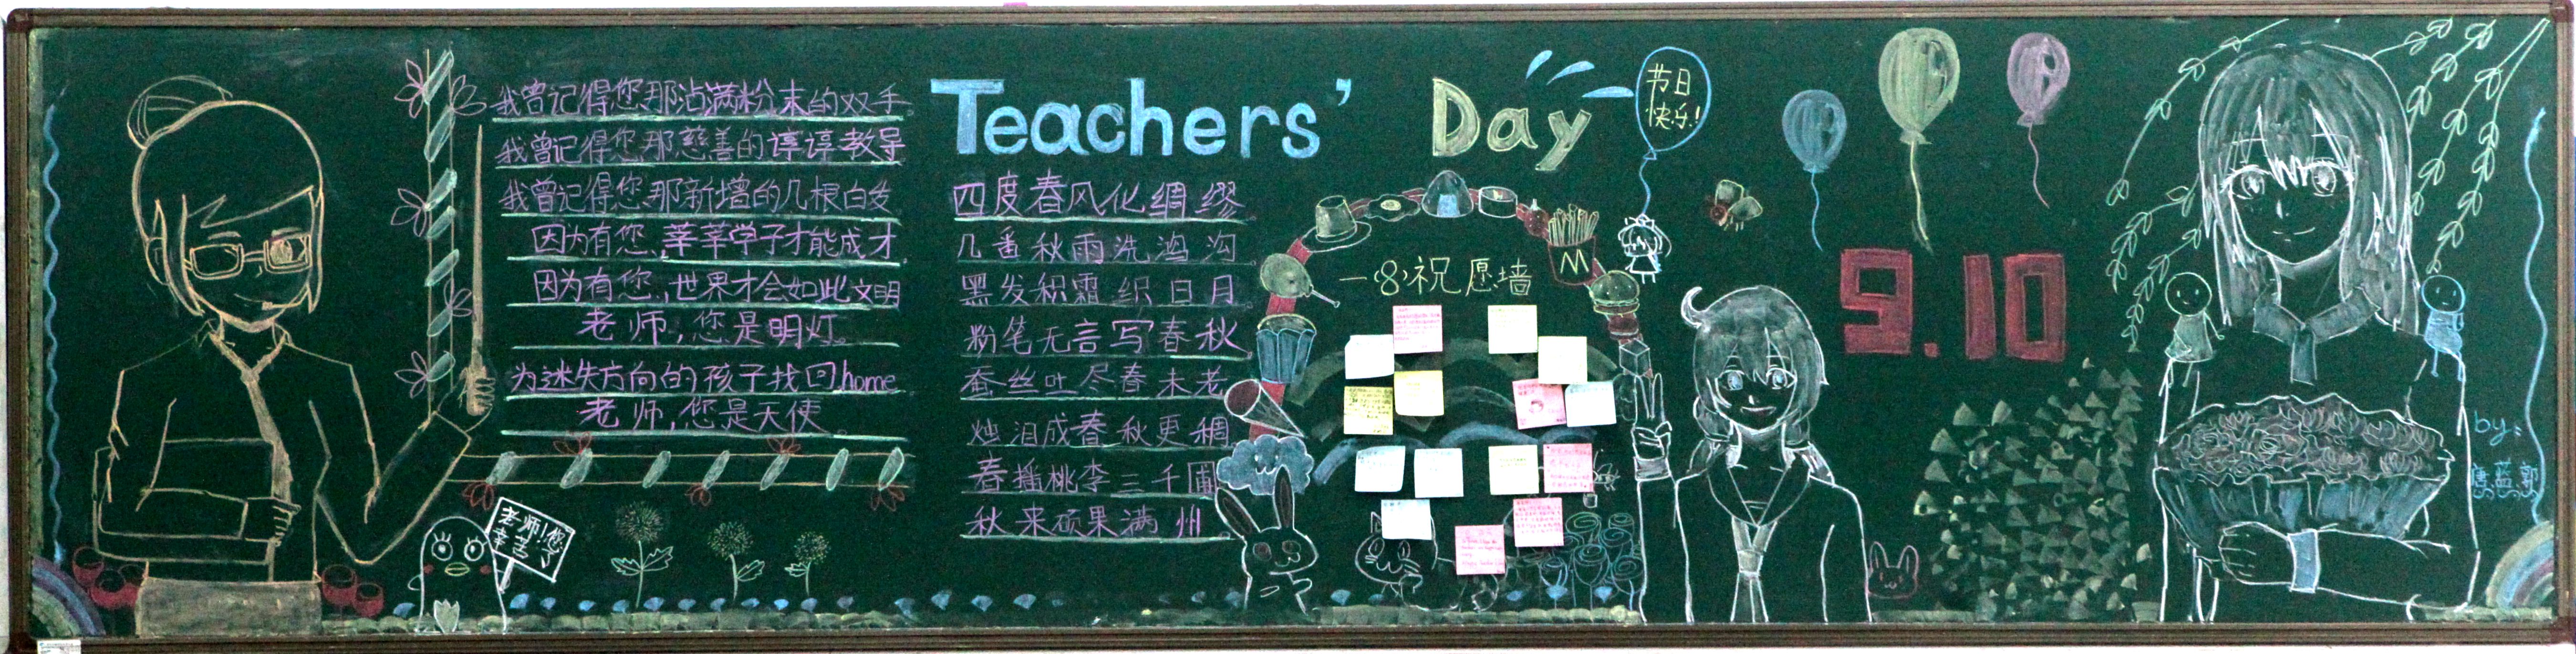 我曾记得您那沾满粉末的双手
我曾记得您那慈善的谆谆教导
我曾记得您那新增的几根白发
因为有您，莘莘学子才能成才
因为有您，世界才会如此文明
老师，您是明灯
为迷失方向的孩子找回home
老师，您是天使
老师！您
幸苦了
Teachers' Day
四度春风化绸缪
几番秋雨洗鸿沟
黑发积霜织日月
粉笔无言写春秋
蚕丝吐尽春未老
烛泪成春秋更稠
春播桃李三千圃
秋来硕果满州
节日
快乐!
一(8)祝愿墙
M
9.10
by:
唐蓝郭